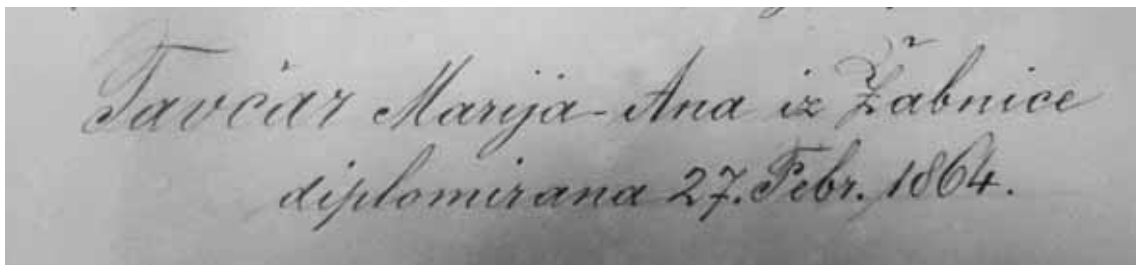 Tavčar Marija-Ana iz Žabnice
diplomirana 27. Febr. 1864.